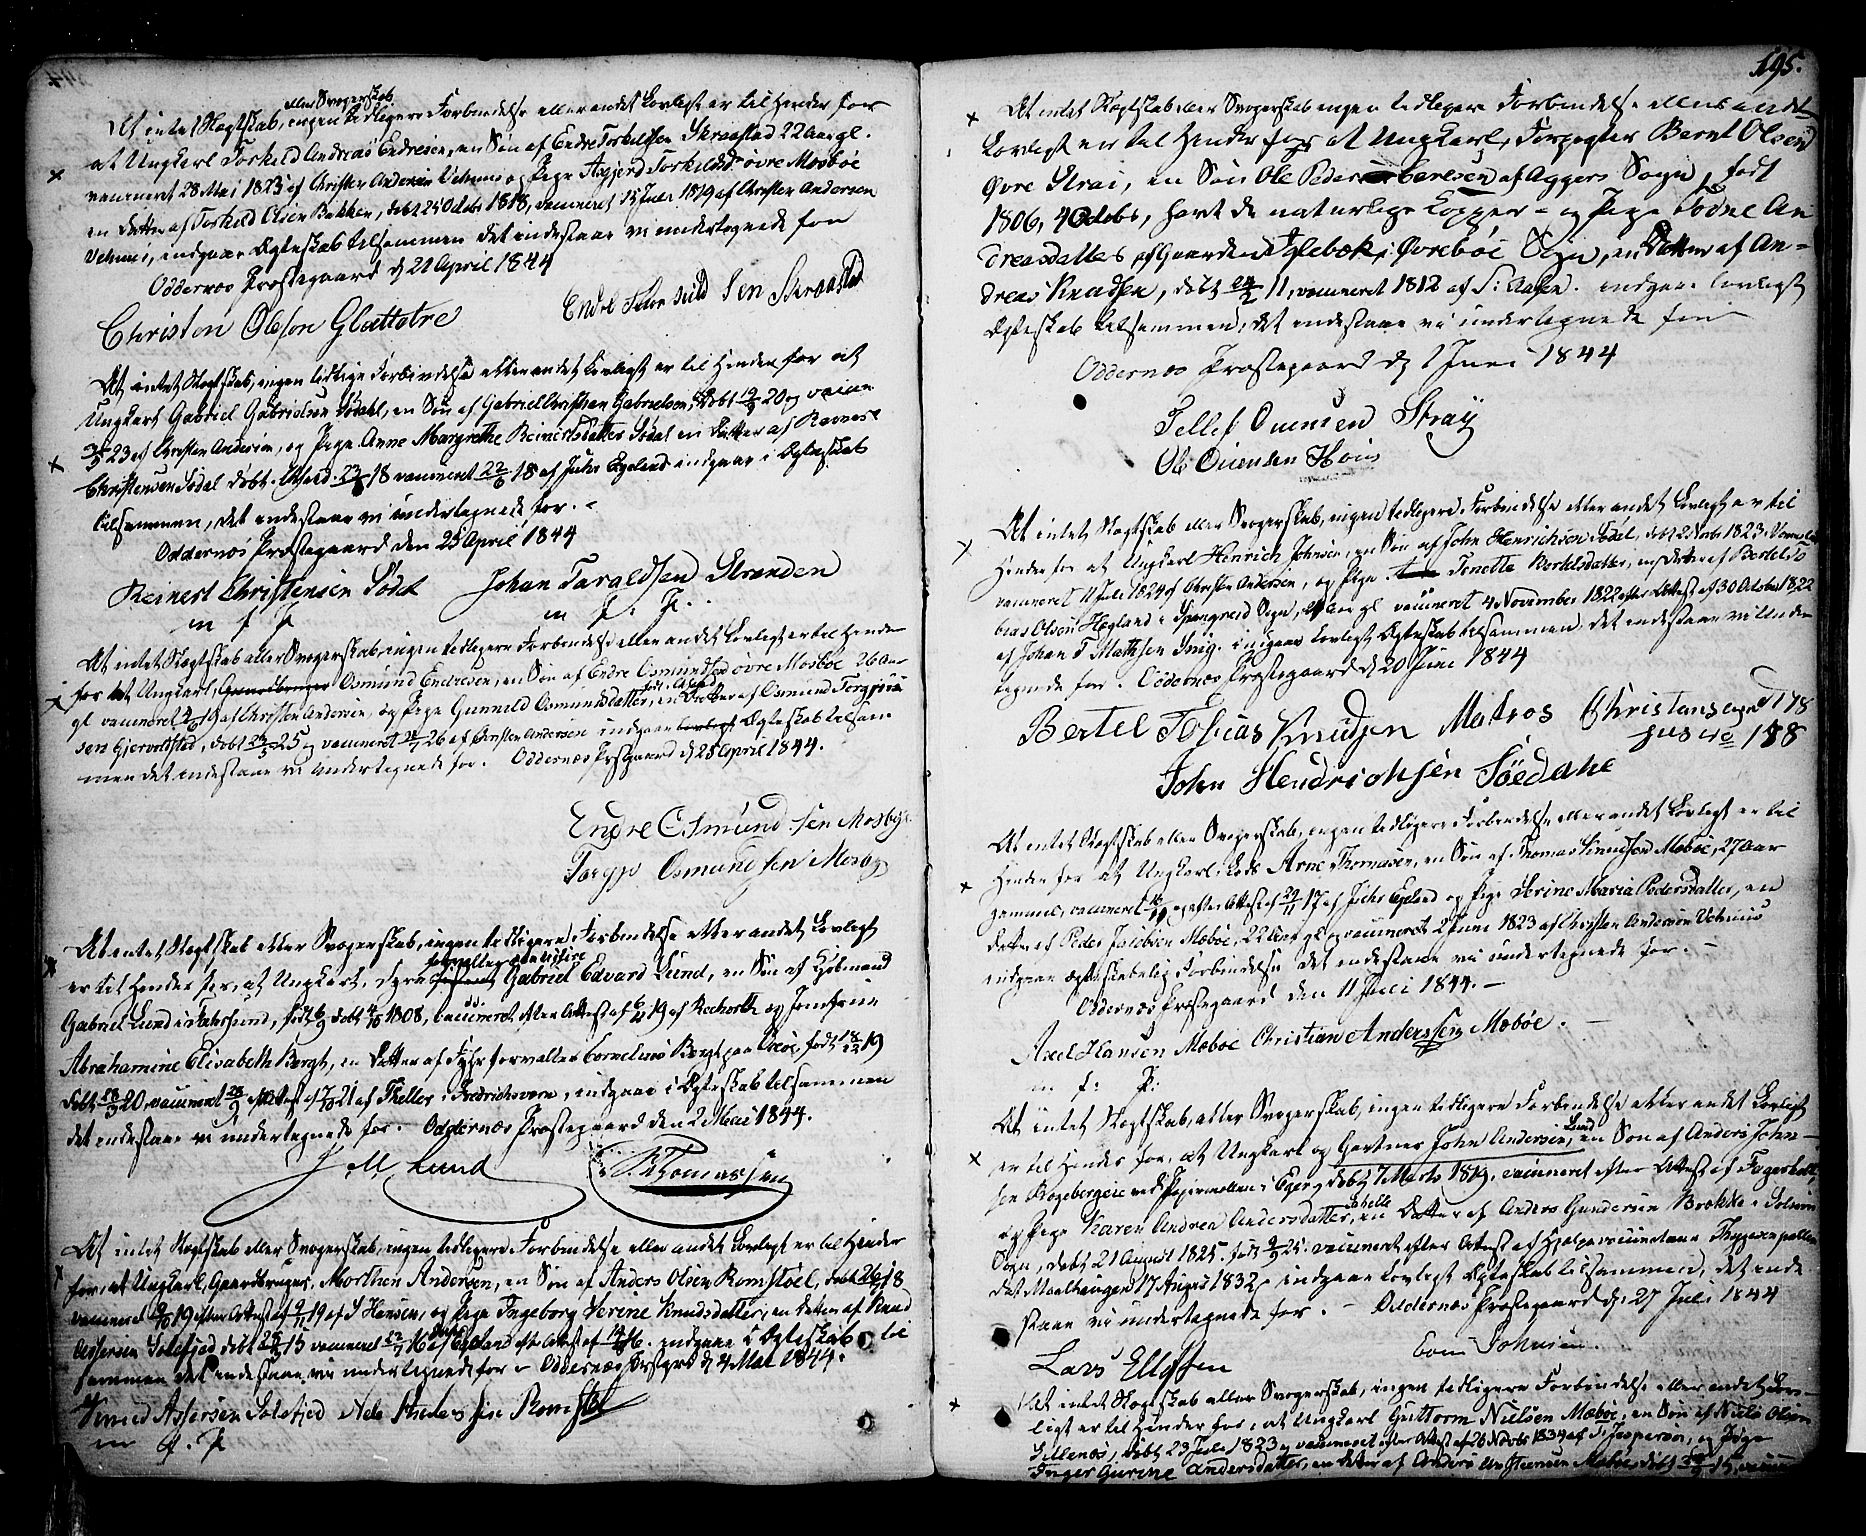 eller Svogerskab
At intet Slegtskab, ingen tidligere Forbindelse eller andet Lovligt er til Hinder for
at Ungkarl Torkild Andreas Endresen, en Søn af Endre Torkildsen Skraastad 22 Aar gl.
vaccineret 28 Mai 1823 af Christen Andersen Vehuus og Pige Asgjerd Torkildsd. øvre Mosbøe
en Datter af Torkild Olsen Bakken, døbt 25 Octobr 1818, vaccineret 15 Juni 1819 af Christen Andersen
Vehuus, indgaae Ægteskab tilsammen det indestaae vi undertegnede for
Oddernæs Præstegaard d 21 April 1844
Christen Olsen Glattetre Endre Torkildsen Skraastad
At intet Slegtskab, ingen tidlige Forbindelse eller andet Lovligt er til Hinder for at
Ungkarl Gabriel Gabrielsen Sødahl, en Søn af Gabriel Christian Gabrielsen, døbt 20 og vaccin
23 af Christen Andersen, og Pige Anne Margrethe Reinertsdatter Sødal en Datter af Reinert
Christensen Sødal døbt 18 vaccineret 18 af Juhr Egeland indgaae i Ægteskab
tilsammen, det indestaae vi undertegnede for.
Oddernæs Præstegaard den 25 April 1844
Reinert Christensen Sødal Johan Taraldsen Stranden
m f P m f. P.
At intet Slegtskab eller Svogerskab, ingen tidligere Forbindelse eller andet Lovligt er til Hinder
for at Ungkarl, Gaardbruger Osmund Endresen, en Søn af Endre Osmundsen øvre Mosbøe 26 Aar
gl vaccineret af Christen Andersen, og Pige Gunnild Osmundsdatter, en Datter af Osmund Torgjus
sen Gjervoldstad, døbt 25 og vaccineret 26 af Christen Andersen indgaae lovligt Ægteskab tilsam
men det indestaae vi undertegnede for. Oddernæs Præstgaard d 28 April 1844.
Endre Osmundsen Mosby
Torgjus Osmundsen Mosby
At intet Slegtskab eller Svogerskab, ingen tidligere Forbindelse eller andet Lovligt
er til Hinder for, at Ungkarl, Gabriel Edvard Lund, en Søn af Kjøbmand
Gabriel Lund i Farsund, født døbt 1808, vaccineret efter Attest af 19 af og Jomfrue
Abrahamine Elisabeth Bergh, en Datter af Fyhrforvalter Cornelius Bergh paa Oxøe, født 19
døbt 20, vaccineret Attest 21 af Theller i Fredrichsværn, indgaae i Ægteskab tilsammen
det indestaae vi undertegnede for. Oddernæs Præstegaard den 2 Mai 1844.
J M Lund Thomassen
At intet Slegtskab eller Svogerskab, ingen tidligere Forbindelse eller andet Lovligt er til Hinder
for, at Ungkarl, Gaardbruger, Morthen Andersen, en Søn af Anders Olsen Romstøel, 18
vaccineret 19 efter Attest af 19 af S Hansen, og Pige Ingeborg Serine Knudsdatter, en Datter af Knud
Assersen Solefjed døbt 15 vaccineret 16 af Egeland eft Attest af 16. indgaae i Ægteskab til
sammen det indestaae vi undertegnede for. Oddernæs Prstgrd d 4 Mai 1844.
Knud Assersen Solefjed Nels Romstøl
m f. P
195.
At intet Slegtskab eller Svogerskab ingen tidligere Forbindelse eller andet
Lovligt er til Hinder for at Ungkarl, Forpagter Bernt Olsen
Øvre Strai, en Søn Ole Peder af Aggers Sogn, født
1806, 4 Octobr, havt de naturlige Kopper - og Pige Tødne An
dreasdatter af Gaarden Iglebæk i Øvrebøe Sogn, en Datter af An-
dreas Knudsen, døbt 24/2 11, vaccineret 1812 af S: Aasen. indgaae lovligt
Ægteskab tilsammen, det indestaae vi undertegnede for
Oddernæs Præstegaard d 1 Juni 1844
Tellef Ouensen Stray
Ole Ouensen Homs
At intet Slegtskab eller Svogerskab, ingen tidligere Forbindelse eller andet Lovligt er til
Hinder for at Ungkarl Henrich Johnsen, en Søn af John Henrichsen Sødal, døbt 1823
vaccineret 11 Juli 1824 af Christen Andersen, og Pige Tonette Bertelsdatter, en Datter af Bertel To
bias Olsen Høgland i Spangreid Sogn, Aar gl vaccineret 4 November 1822 efter Attest af 30 October 1822
af Johan T Mathsen indgaae Lovligt Ægteskab tilsammen det indestaae vi Under-
tegnede for. Oddernæs Præstegaard d 20 Juni 1844
Bertel Tobias Knudsen Matros Christansand 178
188
John Hendrichsen Söedahl
At intet Slegtskab eller Svogerskab, ingen tidligere Forbindelse eller andet Lovligt er til
Hinder for at Ungkarl, Lods Arne Thomasen, en Søn af Thomas Knudsen Mæbøe, 27 Aar
gammel, vaccineret efter Attest af 29/11 17 af Juhr Egeland og Pige Serine Maria Pedersdatter, en
Datter af Peder Jacobsen Mæbøe, 22 Aar gl og vaccineret 2 Juni 1823 af Christen Andersen Vehuus
indgaae ægteskabelig Forbindelse det indestaae vi undertegnede for.
Oddernæs Præstegaard den 11 Juli 1844.
Axel Hansen Mæbøe Christian Anderssen Mæbøe.
m. f: P:
At intet Slegtskab, eller Svogerskab, ingen tidligere Forbindelse eller andet Lovligt
Lund
er til Hinder for, at Ungkarl og Gartner John Andersen, en Søn af Anders John-
sen ved Papiermøllen i Eger døbt 7 Marts 1819, vaccineret efter Attest af
og Pige Karen Andrea Andersdatter, en Datter af Anders Gundersen Brække i Solum
Sogn, døbt 21 August 1825. født 25. vaccineret efter Attest af Hjelpevaccinateur
dat Moelhaugen 17 August 1832 indgaae Lovligt Ægteskab tilsammen, det inde
staae vi undertegnede for. - Oddernæs Præstegaard d 27 Juli 1844
Lars Ellefsen Johnsen.
At intet Slegtskab eller Svogerskab, ingen tidligere Forbindelse eller andet Lov-
ligt er til Hinder for, at Ungkarl Guttorm Nielsen Mæbøe, en Søn af Niels Olsen
døbt 23 Juli 1823 og vaccineret efter Attest af 26 Novbr 1834 af S: Jaspersen, og Pige
Inger Gurine Andersdatter, en Datter af Anders Mæbøe, døbt 15,